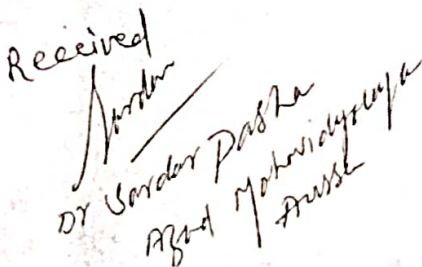 Received
Sardar
Dr Sardar Pasha
Azad Mahavidyalaya
Aussa